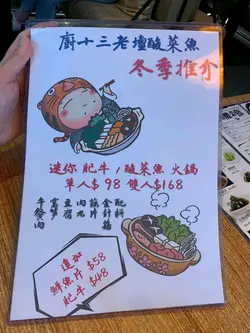 廚十三老壇酸菜魚
冬季推介
迷你 肥牛 / 酸菜魚 火鍋
單人$98 雙人$168
配料
金針菇
藕片
肉丸
豆腐
午餐肉
追加
鮮魚片 $58
肥牛 $48